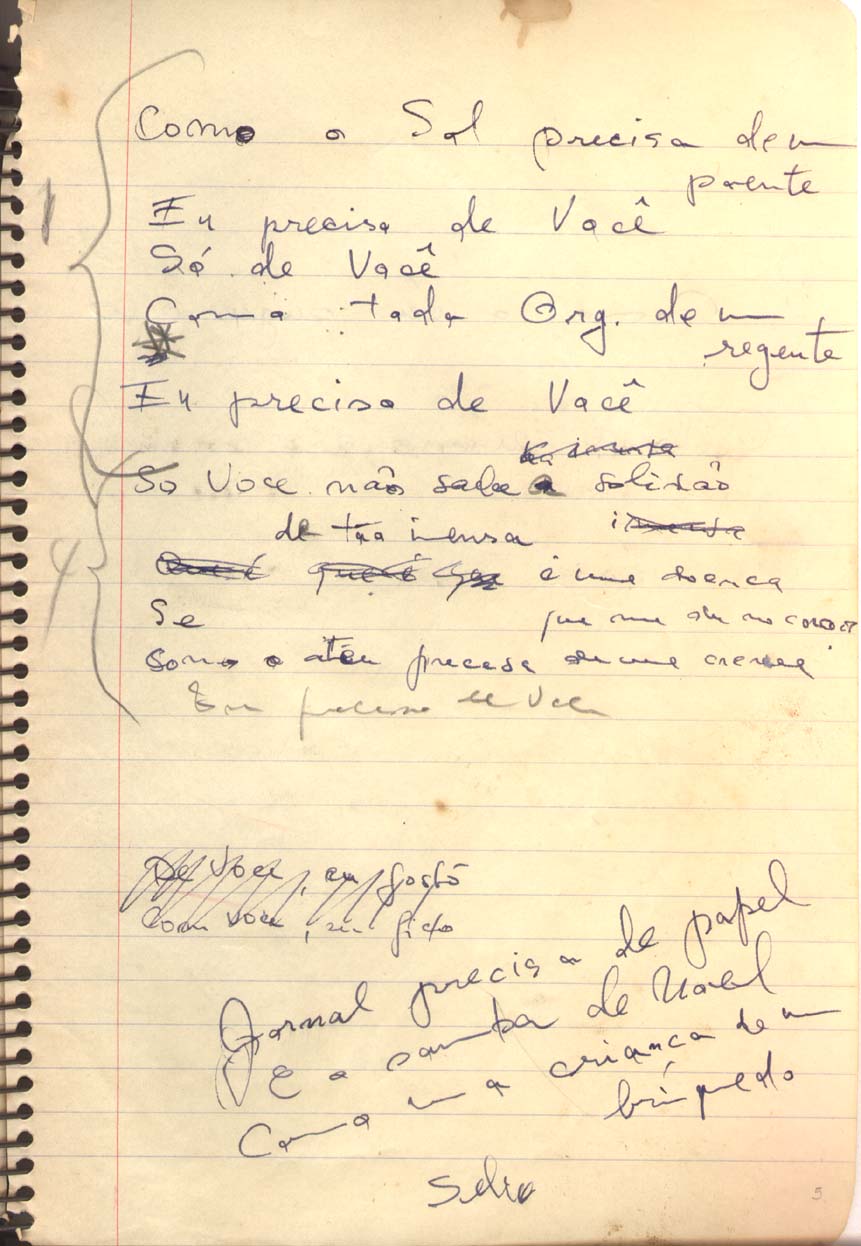 1
Como o Sol precisa de um
poente
Eu preciso de Você
Só de Você
Como toda Org. de um
regente
Eu preciso de Você
So Voce não sabe a solidão
de tão imensa
4
é uma doença
Se
que me
Como o ateu precisa de uma crença
Eu preciso de Voce
De Voce, eu gosto
Com voce, eu fico
Jornal precisa de papel
E o samba de Noel
Como uma criança de um
brinquedo
5